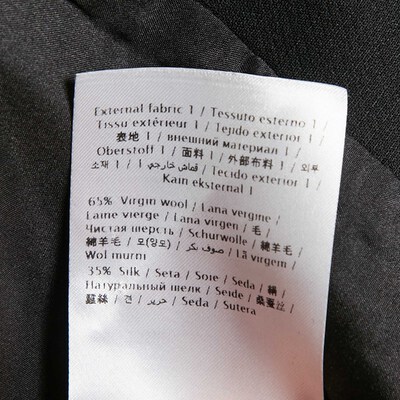 External fabric 1 / Tessuto esterno 1 /
Tissu extérieur 1 / Tejido exterior 1 /
表地 1 / внешний материал 1 /
Oberstoff 1 / 面料 1 / 外部布料 1 / 외부
소재 1 / قماش خارجي 1 / Tecido exterior 1 /
Kain eksternal 1
65% Virgin wool / Lana vergine /
Laine vierge / Lana virgen / 毛 /
Чистая шерсть / Schurwolle / 綿羊毛 /
綿羊毛 / 모(양모) / صوف بكر / Lã virgem /
Wol murni
35% Silk / Seta / Soie / Seda / 絹 /
Натуральный шелк / Seide / 桑蠶丝 /
蠶絲 / 견 / حرير / Seda / Sutera